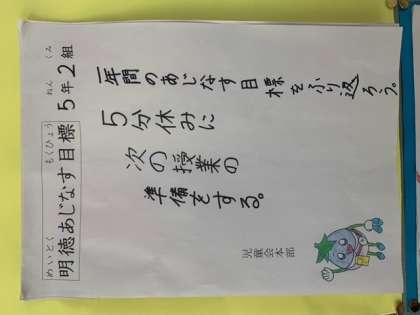 めいとく もくひょう ねん くみ
明徳あじなす目標 5年2組
一年間のあじなす目標をふり返ろう。
5分休みに
次の授業の
準備をする。
児童会本部